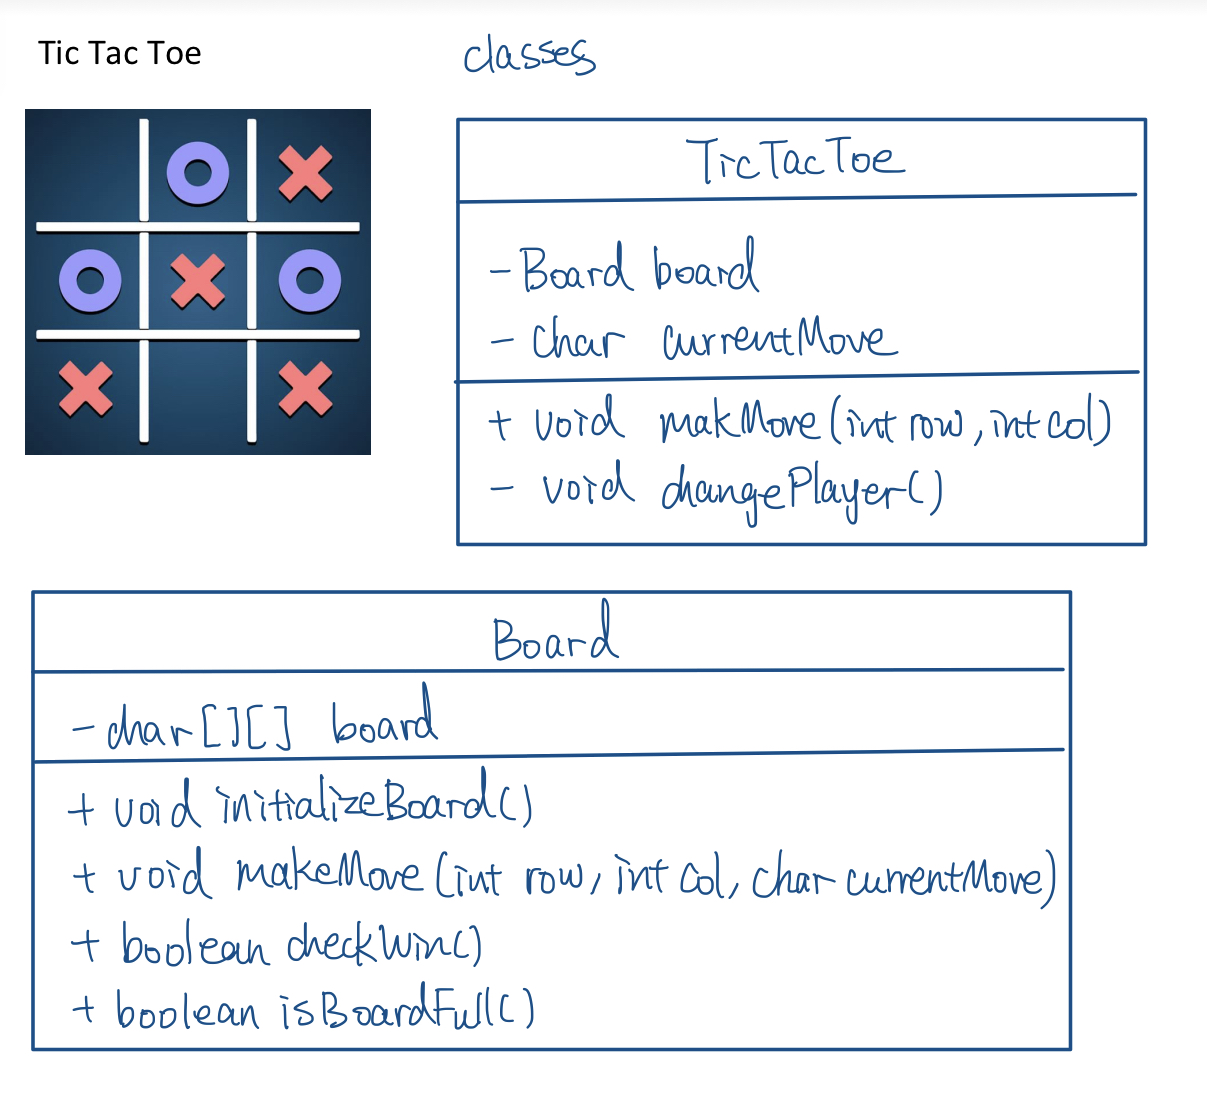 Tic Tac Toe
classes
TicTacToe
- Board board
- char currentMove
+ void makMove(int row, int col)
- void changePlayer()
Board
- char[][] board
+ void initializeBoard()
+ void makeMove(int row, int col, char currentMove)
+ boolean checkWin()
+ boolean isBoardFull()